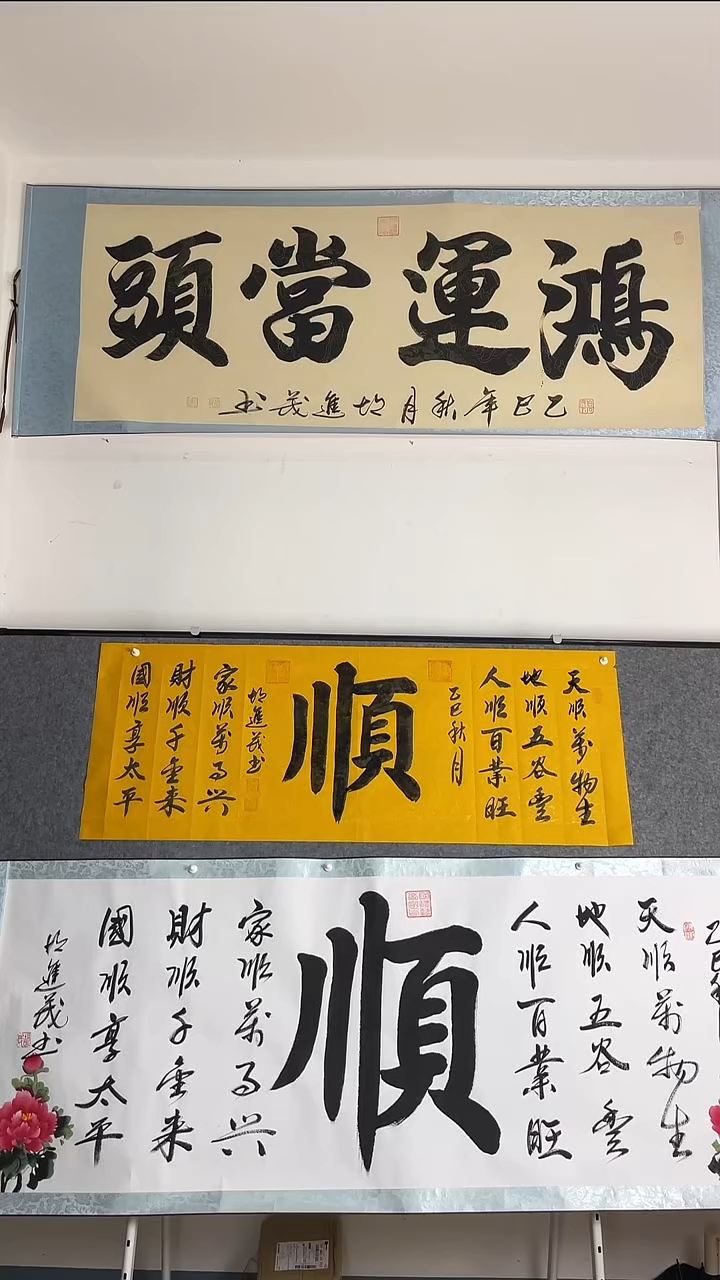 鴻運當頭
乙巳年秋月胡進茂书
天順萬物生
地順五谷豐
人順百業旺
乙巳秋月
順
胡進茂书
家順萬事兴
財順千金来
國順享太平
乙巳年
天順萬物生
地順五谷豐
人順百業旺
順
家順萬事兴
財順千金来
國順享太平
胡進茂书